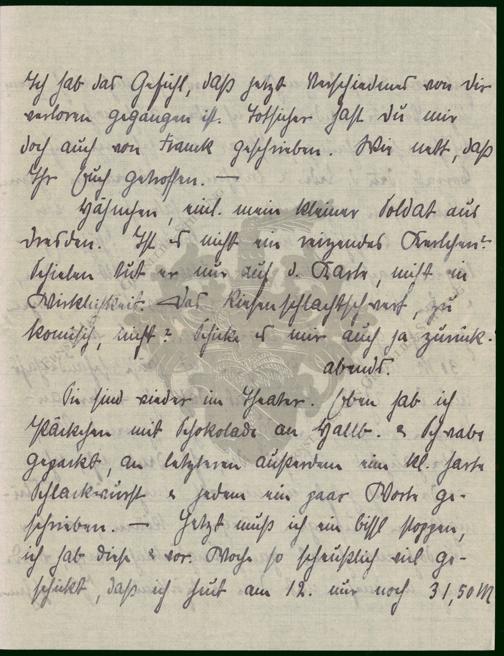 Ich hab das Gefühl, daß jetzt Verschiedenes von Dir
verloren gegangen ist. Todsicher hast Du mir
doch auch von Franck geschrieben. Wie nett, daß
Ihr Euch getroffen. —
Hähnchen, einl. mein kleiner Soldat aus
Dresden. Ist es nicht ein reizendes Kerlchen?
Schielen tut er nur auf d. Karte, nicht in
Wirklichkeit. Das Riesenschlachtschwert, zu
komisch, nicht? Schicke es mir auch ja zurück.
abends.
Sie sind wieder im Theater. Eben hab ich
Päckchen mit Schokolade an Hallb. & Schwabe
gepackt an letzteren außerdem eine kl. harte
Schlackwurst & jedem ein paar Worte ge-
schrieben. — Jetzt muß ich ein bissl stoppen,
ich hab diese & vor. Woche so scheußlich viel ge-
schickt, daß ich heut am 12. nur noch 31,50 M